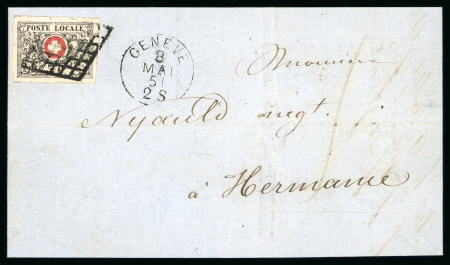 POSTE LOCALE
GENÈVE
8
MAI
51
2 S
Monsieur
negt.
à Hermance